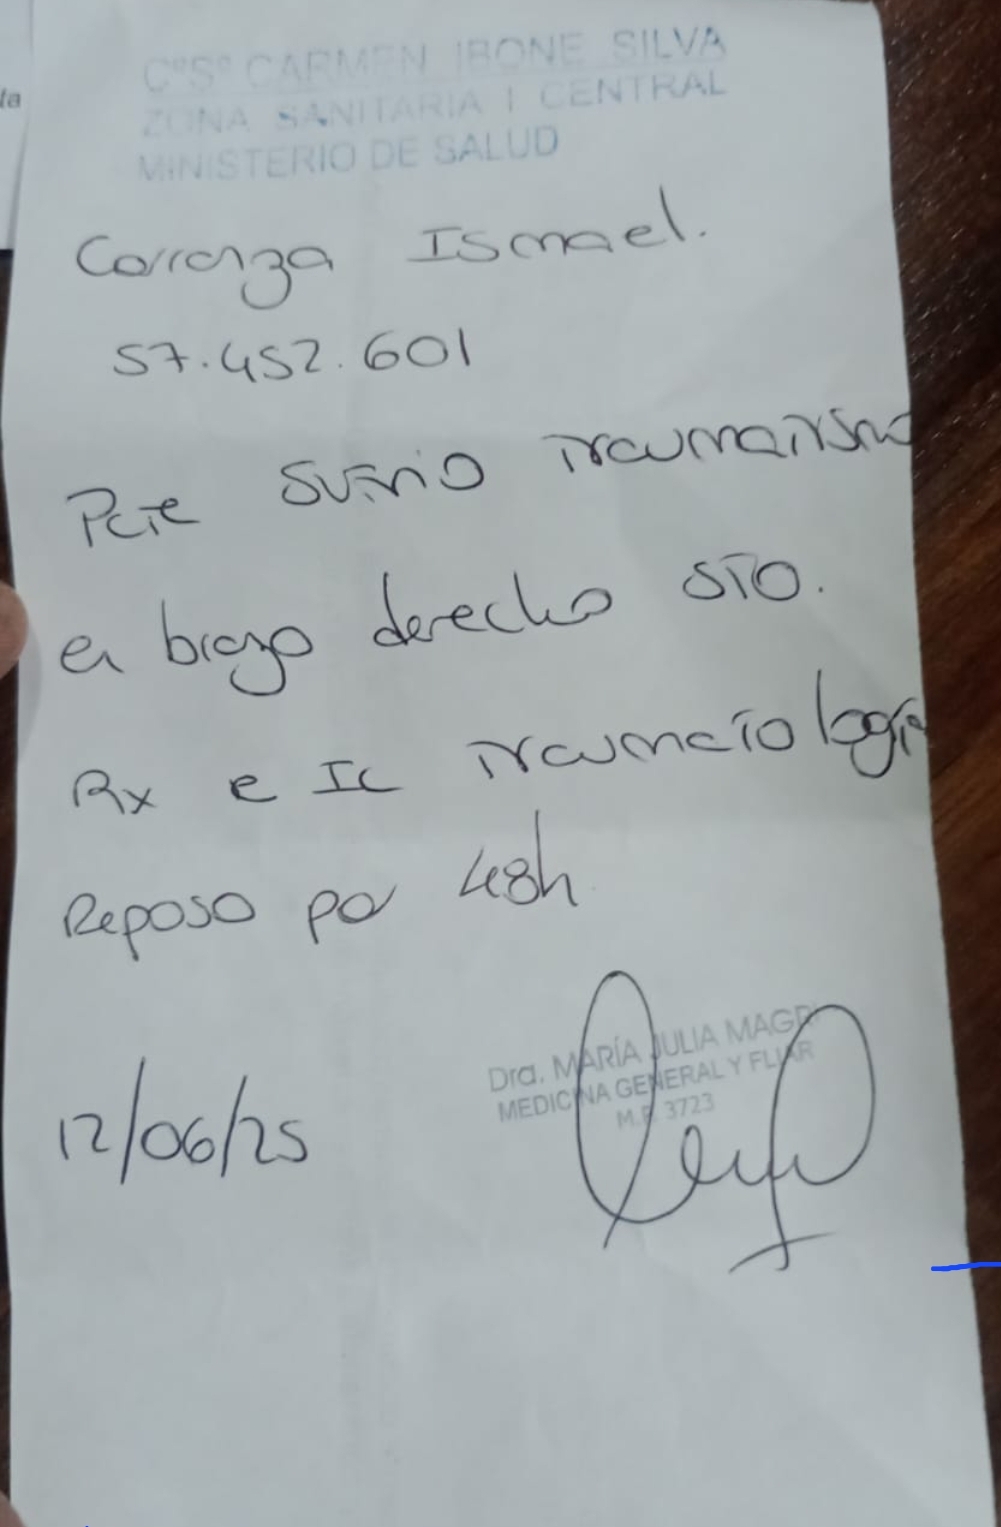 CºSº CARMEN IBONE SILVA
ZONA SANITARIA I CENTRAL
MINISTERIO DE SALUD
Carranza Ismael.
57.452.601
Pcte sufrió traumatismo
en brazo derecho STO.
Rx e IC traumatología
Reposo por 48h
12/06/25
Dra. MARÍA JULIA MAGRI
MEDICINA GENERAL Y FLIAR
M.P. 3723
ta